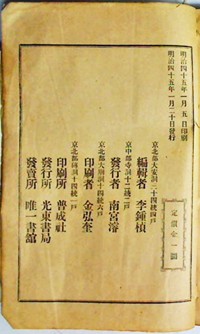 明治四十五年一月五日印刷
明治四十五年一月二十日發行
定價金一圜
京北部大安洞三十四統四戶
編輯者 李鍾楨
京中部寺洞十二統二戶
發行者 南宮濬
京北部大廟洞十四統六戶
印刷者 金弘奎
京北部磚洞十四統一戶
印刷所 普成社
發行所 光東書局
發賣所 唯一書館